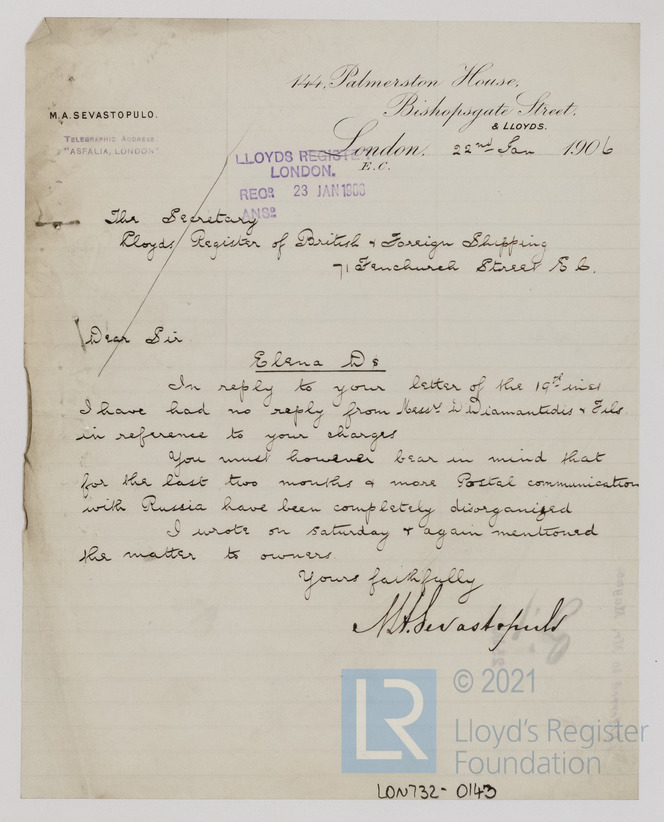 144, Palmerston House,
Bishopsgate Street,
& LLOYDS.
M.A.SEVASTOPULO.
TELEGRAPHIC ADDRESS.
"ASFALIA, LONDON"
London. 22nd Jan 1906
E.C.
LLOYDS REGISTER
LONDON.
RECD. 23 JAN 1906
ANSD.
The Secretary
Lloyds Register of British & Foreign Shipping
71 Fenchurch Street E C.
Dear Sir
Elena Ds
In reply to your letter of the 19th inst
I have had no reply from Messrs D Diamantidis & Fils
in reference to your charges
You must however bear in mind that
for the last two months & more Postal communication
with Russia have been completely disorganized
I wrote on Saturday & again mentioned
the matter to owners.
Yours faithfully
M A. Sevastopulo
LR
© 2021
Lloyd's Register
Foundation
LON732-0143